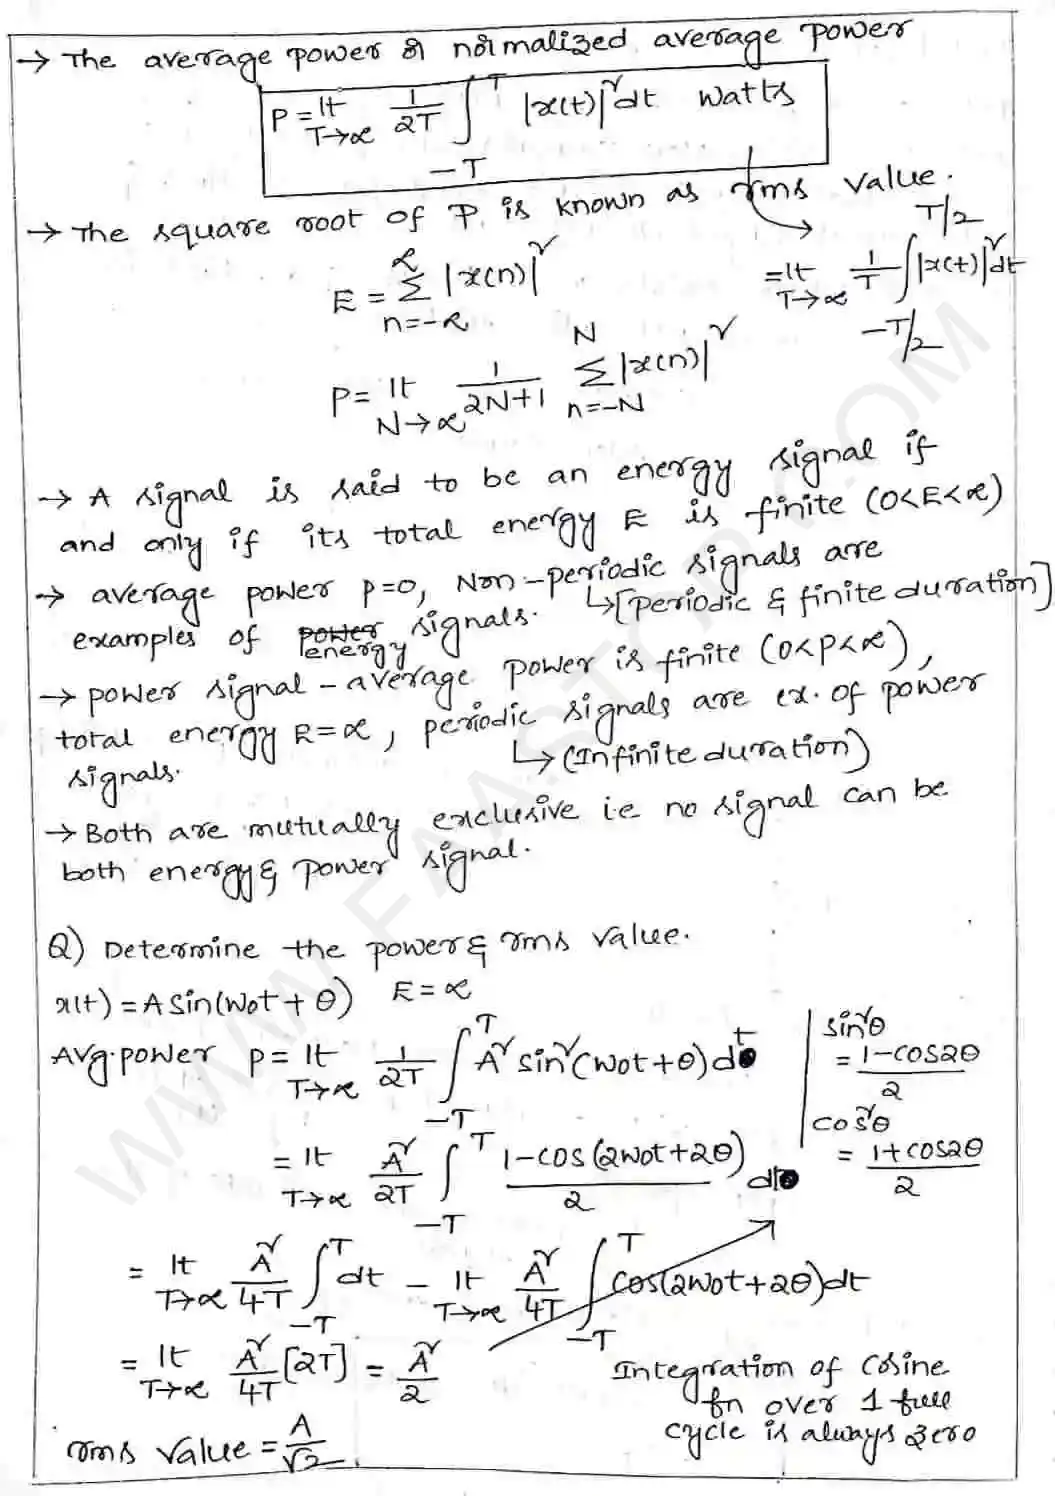 → The average power or normalized average power
P = lt T→∝ 1/2T ∫_{-T}^{T} |x(t)|² dt watts
→ The square root of P is known as rms value.
= lt T→∝ 1/T ∫_{-T/2}^{T/2} |x(t)|² dt
E = ∑_{n=-∝}^{∝} |x(n)|²
P = lt N→∝ 1/2N+1 ∑_{n=-N}^{N} |x(n)|²
→ A signal is said to be an energy signal if
and only if its total energy E is finite (0<E<∝)
→ average power p=0, Non-periodic signals are
↳[periodic & finite duration]
examples of power energy signals.
→ power signal - average power is finite (0<p<∝),
total energy E=∝, periodic signals are ex. of power
↳(Infinite duration)
signals.
→ Both are mutually exclusive i.e no signal can be
both energy & power signal.
Q) Determine the power & rms value.
x(t) = A sin(wot + θ) E = ∝
Avg.power p = lt T→∝ 1/2T ∫_{-T}^{T} A² sin²(wot + θ) dt
sin²θ = 1-cos2θ / 2
cos²θ = 1+cos2θ / 2
= lt T→∝ A²/2T ∫_{-T}^{T} 1-cos(2wot+2θ) / 2 dt
= lt T→∝ A²/4T ∫_{-T}^{T} dt - lt T→∝ A²/4T ∫_{-T}^{T} cos(2wot+2θ)dt
= lt T→∝ A²/4T [2T] = A²/2
Integration of cosine
fn over 1 full
cycle is always zero
rms value = A/√2
WWW.FAASTOP.COM